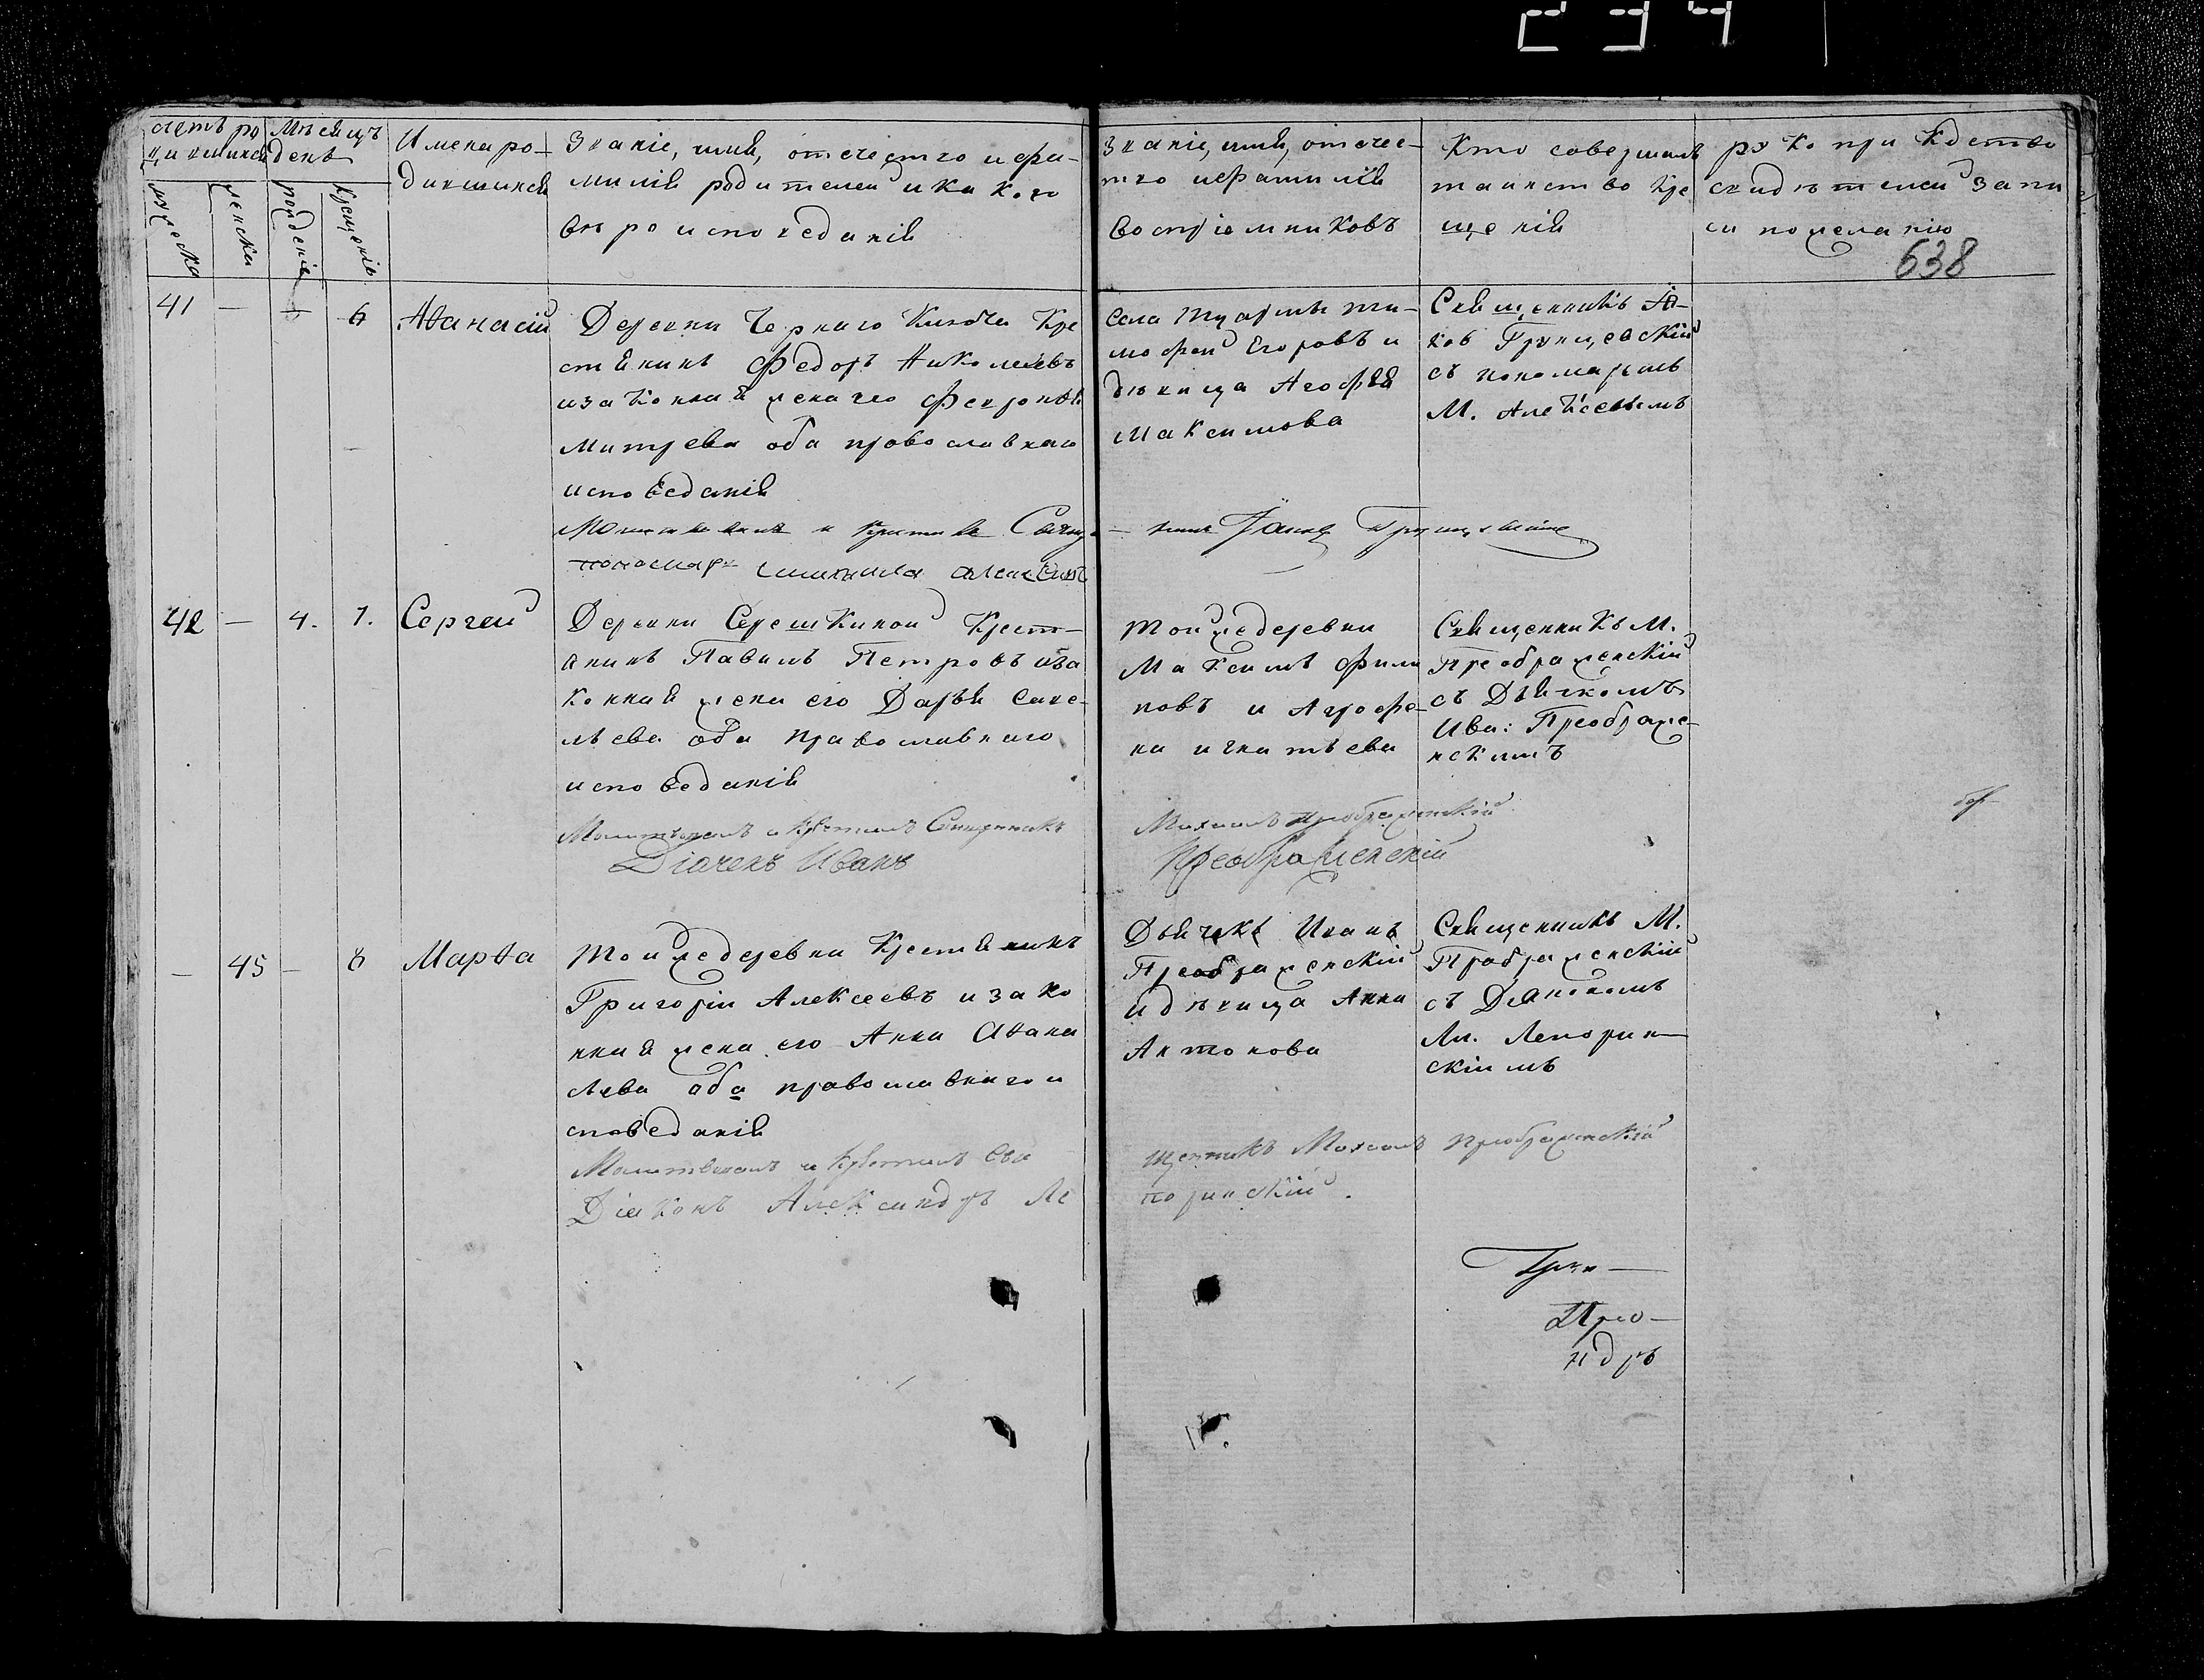 234
счетъ ро
дившихся
Мѣсяцъ
день
мужеска
женска
рожденія
крещенія
Имена ро-
дившихся
Званіе, имя, отечество и фа-
милія родителей и како го
вѣро исповеданія
Званіе, имя, отечес-
тво и фамилія
Воспріемниковъ
Кто совершалъ
таинство кре
щенія
руко при кдство
свидѣтелей запи
си пожеланію
638
41 — 6 Афанасій
Деревни Чернаго Ключа Кре
стянинъ Федоръ Николаевъ
изаконная жена его Феврония
Митрева оба провославнаго
исповеданія
села ти-
мофей Егоровъ и
дѣвица Агофия
Максимова
Священникъ Я-
ковъ
съ пономаремъ
М. Алексеевымъ
Молитвовалъ и крестилъ Свящ
пономарь
42 — 4. 7. Сергей
Деревни Серешкиной Крест-
янинъ Павилъ Петровъ иза
конная жена его Дарья Саве-
лѣева оба православнаго
исповеданія
Тойже деревни
Максимъ Фили
повъ и Агрофе-
на игнатьева
Священникъ М.
Преображенскій
съ Дьячкомъ
Ива: Преображе-
нскимъ
Молитвовалъ и крестилъ Священникъ Михаилъ Преображенскій
Діачекъ Иванъ Преображенскій
— 45 — 8 Марфа
Тойже деревни Крестянинъ
Григорій Алексеевъ изако
нная жена его Анна Афана
сьева оба православнаго и
споведанія
Дьячекъ Иванъ
Преображенскій
идѣвица Анна
Антонова
Священникъ М.
Прображенскій
съ Деакономъ
Ал. Лепорин-
скіимъ
Молитвовалъ и крестилъ Свя щенникъ Михаилъ Преображенскій
Діаконъ Александръ Ле поринскій.
Прео-
ндръ